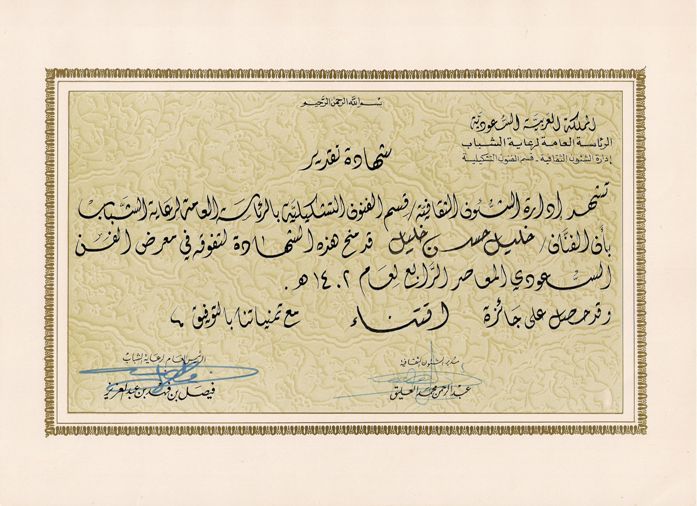 بسم الله الرحمن الرحيم
المملكة العربية السعودية
الرئاسة العامة لرعاية الشباب
إدارة الشئون الثقافية - قسم الفنون التشكيلية
شهادة تقدير
تشهد إدارة الشئون الثقافية / قسم الفنون التشكيلية بالرئاسة العامة لرعاية الشباب
بأن الفنان / خليل حسن خليل قد منح هذه الشهادة لتفوقه في معرض الفن
السعودي المعاصر الرابع لعام ١٤٠٢ هـ.
وقد حصل على جائزة اقتناء مع تمنياتنا بالتوفيق
مدير الشئون الثقافية
عبد الرحمن محمد العليق
الرئيس العام لرعاية الشباب
فيصل بن فهد بن عبد العزيز